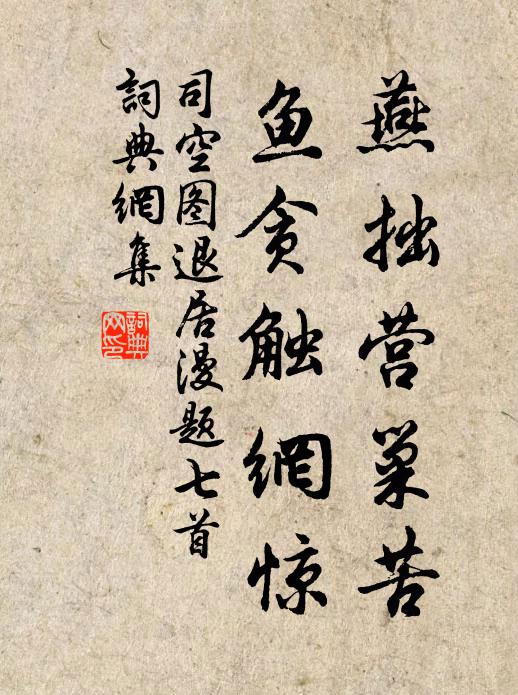 燕拙营巢苦
鱼贪触網惊
司空图退居漫题七首
詞典網集
詞典網印